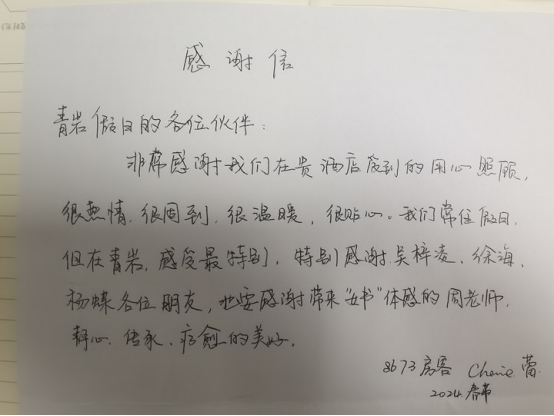 感谢信
青岩假日的各位伙伴：
非常感谢我们在贵酒店受到的用心照顾，
很热情，很周到，很温暖，很贴心。我们常住假日，
但在青岩，感受最特别，特别感谢吴梓凌，徐海，
杨蝶各位朋友，也要感谢带来“女书”体感的周老师，
静心、传承、疗愈的美好。
8673房客 Cherie 蕾
2024春节